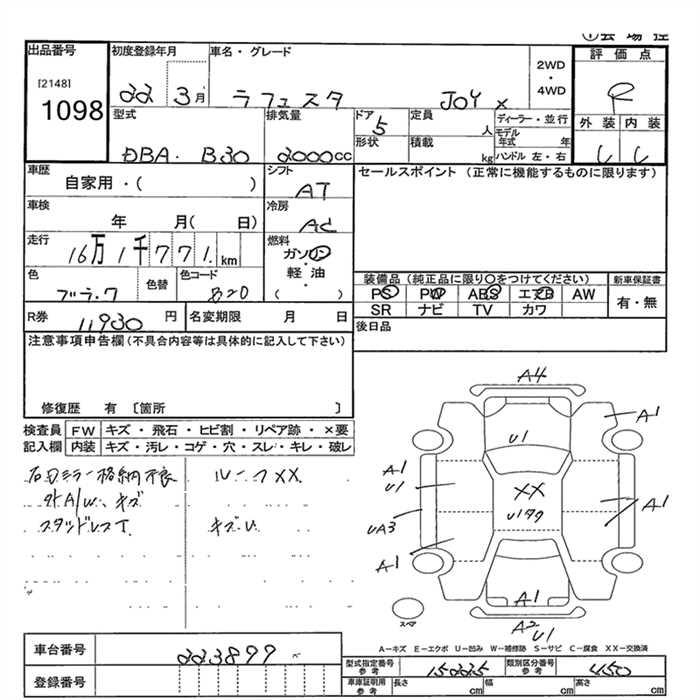 ①会場控
出品番号 初度登録年月 車名・グレード 2WD・4WD 評価点
[2148] 1098 22 3月 ラフェスタ JOY X R
型式 排気量 ドア 定員 人 ディーラー・並行 外装 内装
DBA・B30 2000cc 5 形状 積載 kg モデル年式 年 ハンドル 左・右
車歴 自家用・( ) シフト AT セールスポイント (正常に機能するものに限ります)
車検 年 月( 日) 冷房 AC
走行 16万1千771km 燃料 ガソリン 軽油 ( )
色 色替 色コード B20
装備品 (純正品に限り○をつけてください) 新車保証書
PS PW ABS エアB AW 有・無
SR ナビ TV カワ
R券 11930円 名変期限 月 日 後日品
注意事項申告欄 (不具合内容等は具体的に記入して下さい)
修復歴 有 〔箇所 〕
検査員 FW キズ・飛石・ヒビ割・リペア跡・×要
記入欄 内装 キズ・汚レ・コゲ・穴・スレ・キレ・破レ
格納不良 ルーフXX
外A/W、キズ
スタッドレスT キズU
A4
U1 A1
A1
U1 XX A1
UA3 U1タク
A1
A1
スペア A2
U1
A-キズ E-エクボ U-凹み W-補修跡 S-サビ C-腐食 XX-交換済
車台番号 223899
登録番号
型式指定番号 参考 15225 類別区分番号 参考 450
車庫証明用 参考 長さ cm 幅 cm 高さ cm